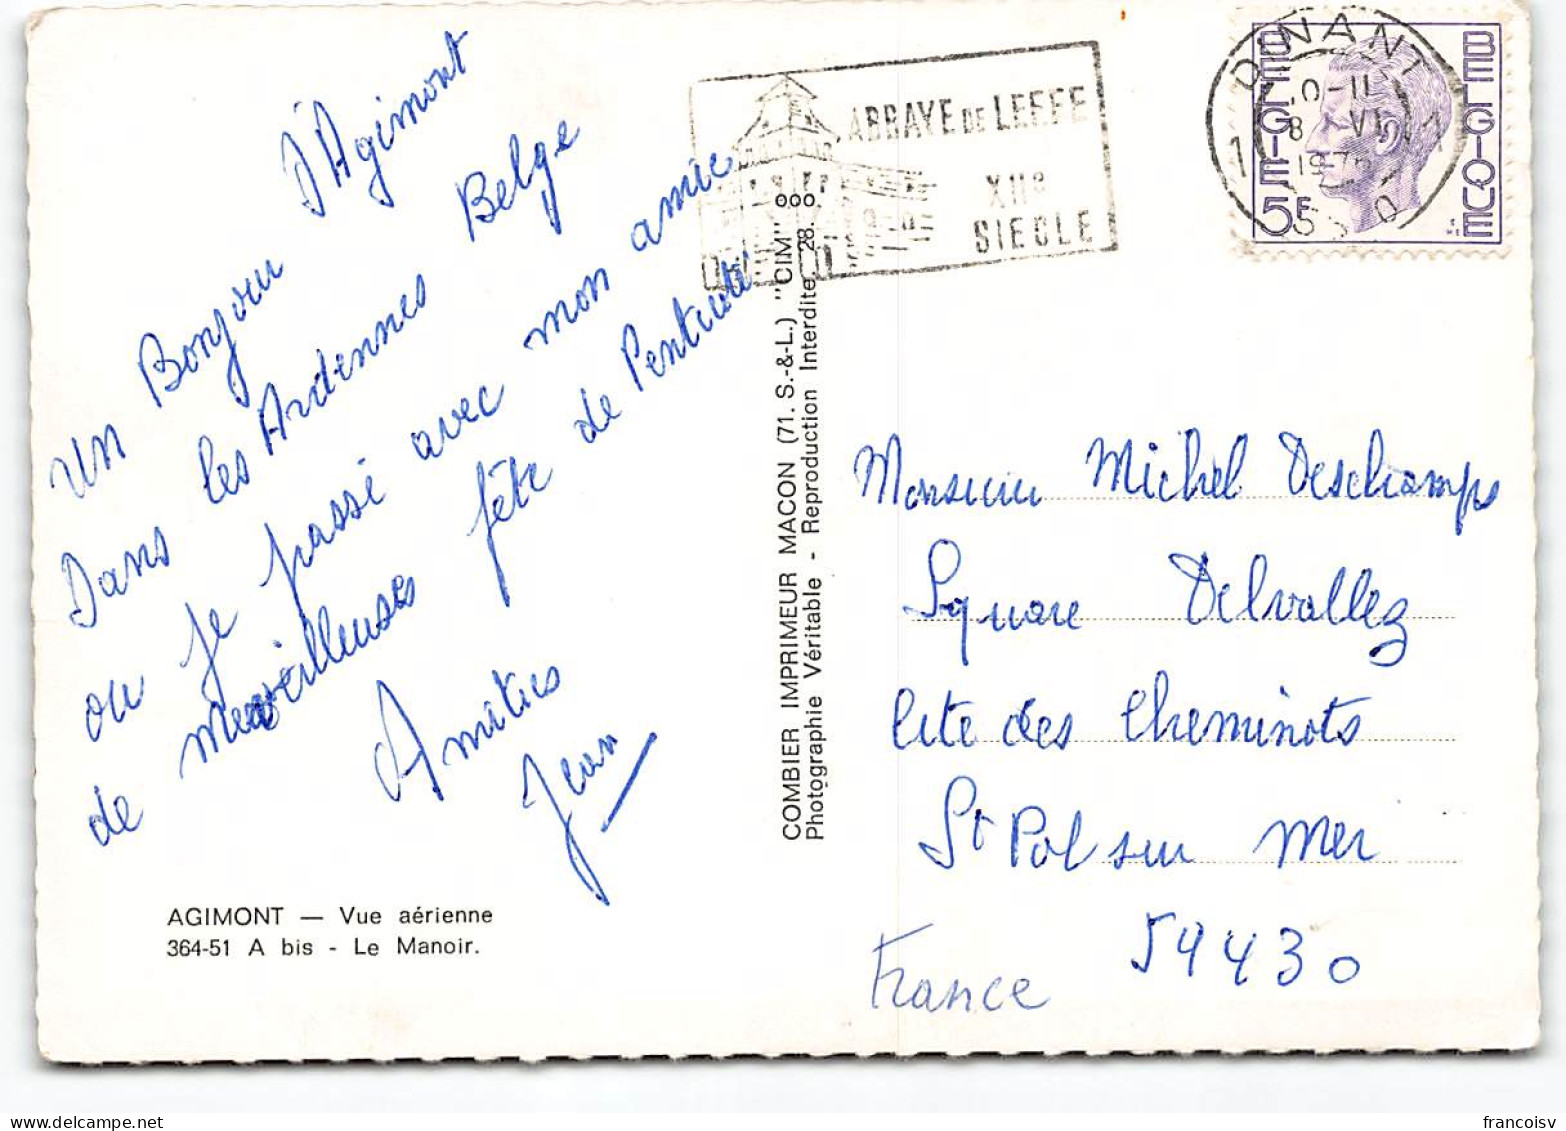 Un Bonjour d'Agimont
Dans les Ardennes Belge
ou je passé avec mon amie
de merveilleuses fête de Pentecôte
Amitiés
Jean
AGIMONT — Vue aérienne
364-51 A bis - Le Manoir.
COMBIER IMPRIMEUR MACON (71. S.-&-L.) "CIM"
Photographie Véritable - Reproduction Interdite
ABBAYE DE LEFFE
XIIe
SIECLE
DINANT
1 1
8 VI
BELGIË BELGIQUE
5F
Monsieur Michel Deschamps
Square Delvallez
Cite des Cheminots
St Pol sur Mer
59430
France
francoisv